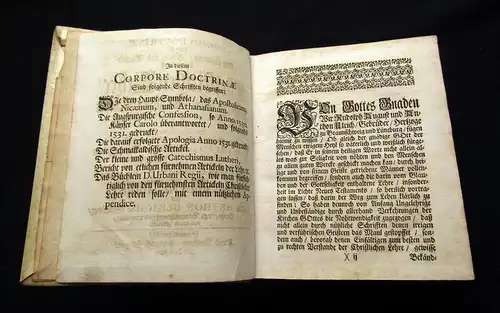 In diesem
CORPORE DOCTRINÆ
Sind folgende Schrifften begriffen:
Die drey Haupt-Symbola / das Apostolicum,
Nicænum, und Athanasianum.
Die Augspurgische Confession, so Anno 1530.
Käyser Carolo überantwortet / und folgends
1531. gedruckt /
Die darauf erfolgte Apologia Anno 1531. gedruckt.
Die Schmalkaldische Articket.
Der kleine und grosse Catechismus Lutheri,
Bericht von etlichen fürnehmsten Articteln der Lehre / ec.
Des Bischoffen D. Urbani Regii, wie man fürsich-
tiglich von den fürnehmsten Articteln Christlicher
Lehre reden solle / mit einem nützlichen Ap-
pendice.
Von Gottes Gnaden
Wir Rudolph August und An-
thon Ulrich / Gebrüder / Hertzoge
zu Braunschweig und Lüneburg / fügen
hiemit zu wissen / Ob gleich der gnädige GOtt der
Menschen ewigen Heyl so väterlich und vorsichtig fürge-
schrieben / daß er in seinem heiligen Worte nicht allein alles
was zur Seligkeit von nöthen und den Menschen
zu allen guten Wercke geschickt machen kan / durch hei-
lige und von seinem Geiste getriebene Männer vollkom-
men begreiffen / sondern auch die darin vom Glauben
und der Gottseligkeit enthaltene Lehre / insonder-
heit im Liecht Neues Testaments / so herrlich vortra-
gen lassen / daß darin der Weg zum Leben klärlich zu
finden: So haben dennoch von Anfang Ungelehrige
und Unbeständige durch allerhand Verkehrungen der
Kirchen GOttes die Nohtwendigkeit zugezogen / daß
nicht allein durch nützliche Schrifften denen irrigen
und verführischen Geistern das Maul gestopffet / son-
dern auch / bevorab denen Einfältigen zum besten und
zu rechten Verstande der Christlichen Lehre / gewisse
X ij Bekänd-